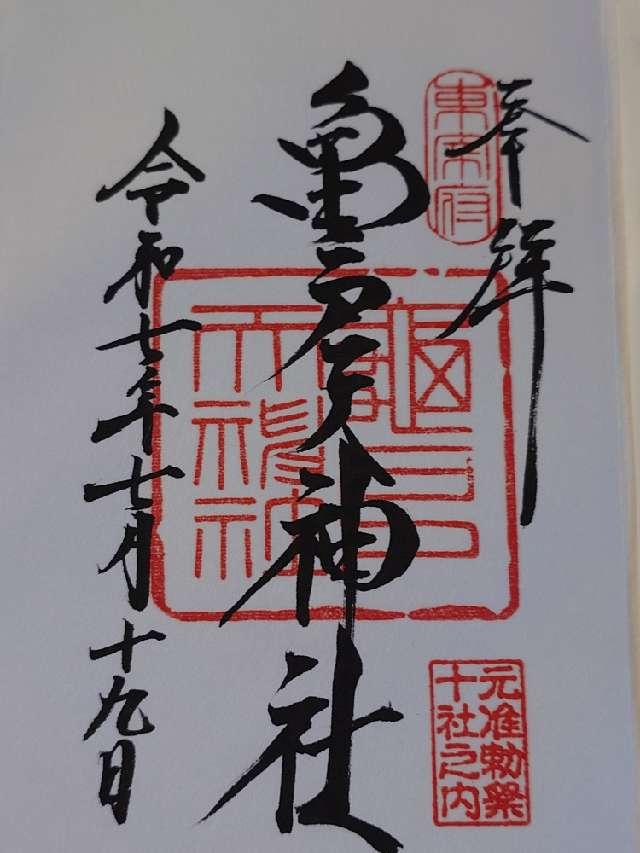 奉拝
東宰府
亀戸天神社
龜戸天神社
令和七年七月十九日
元准勅祭
十社之内